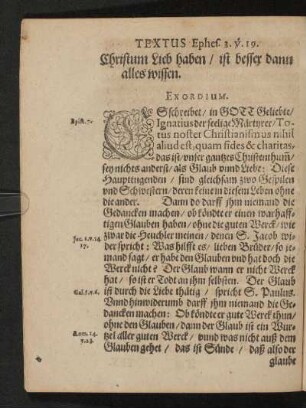 TEXTUS Ephes. 3. v. 19.
Christum Lieb haben / ist besser dann
alles wissen.
EXORDIUM.
ES schreibet / in GOTT Geliebte /
Epist. 7.
Ignatius der seelige Märtyrer / To-
tus noster Christianismus nihil
aliud est, quam fides & charitas.
das ist / unser gantzes Christenthum /
sey nichts anderst / als Glaub unnd Liebe: Diese
Haupttugenden / sind gleichsam zwo Gespielen
und Schwestern / deren keine in diesem Leben ohne
die ander. Dann do darff ihm niemand die
Gedancken machen / ob köndte er einen warhaff-
tigen Glauben haben / ohne die guten Werck / wie
zwar die Heuchler meinen / denen S. Jacob wi-
Jac. 2. v. 14.
17.
derspricht: Was hilfft es / lieben Brüder / so je-
mand sagt / er habe den Glauben und hat doch die
Werck nicht? Der Glaub wann er nicht Werck
hat / so ist er Todt an ihm selbsten. Der Glaub
Gal. 5. v. 6.
ist durch die Liebe thätig / spricht S. Paulus.
Unnd hinwiderumb darff ihm niemand die Ge-
dancken machen: Ob köndte er gute Werck thun /
ohne den Glauben / dann der Glaub ist ein Wur-
Rom. 14.
v. 23.
tzel aller guten Werck / unnd was nicht auß dem
Glauben gehet / das ist Sünde / daß also der
glaubt